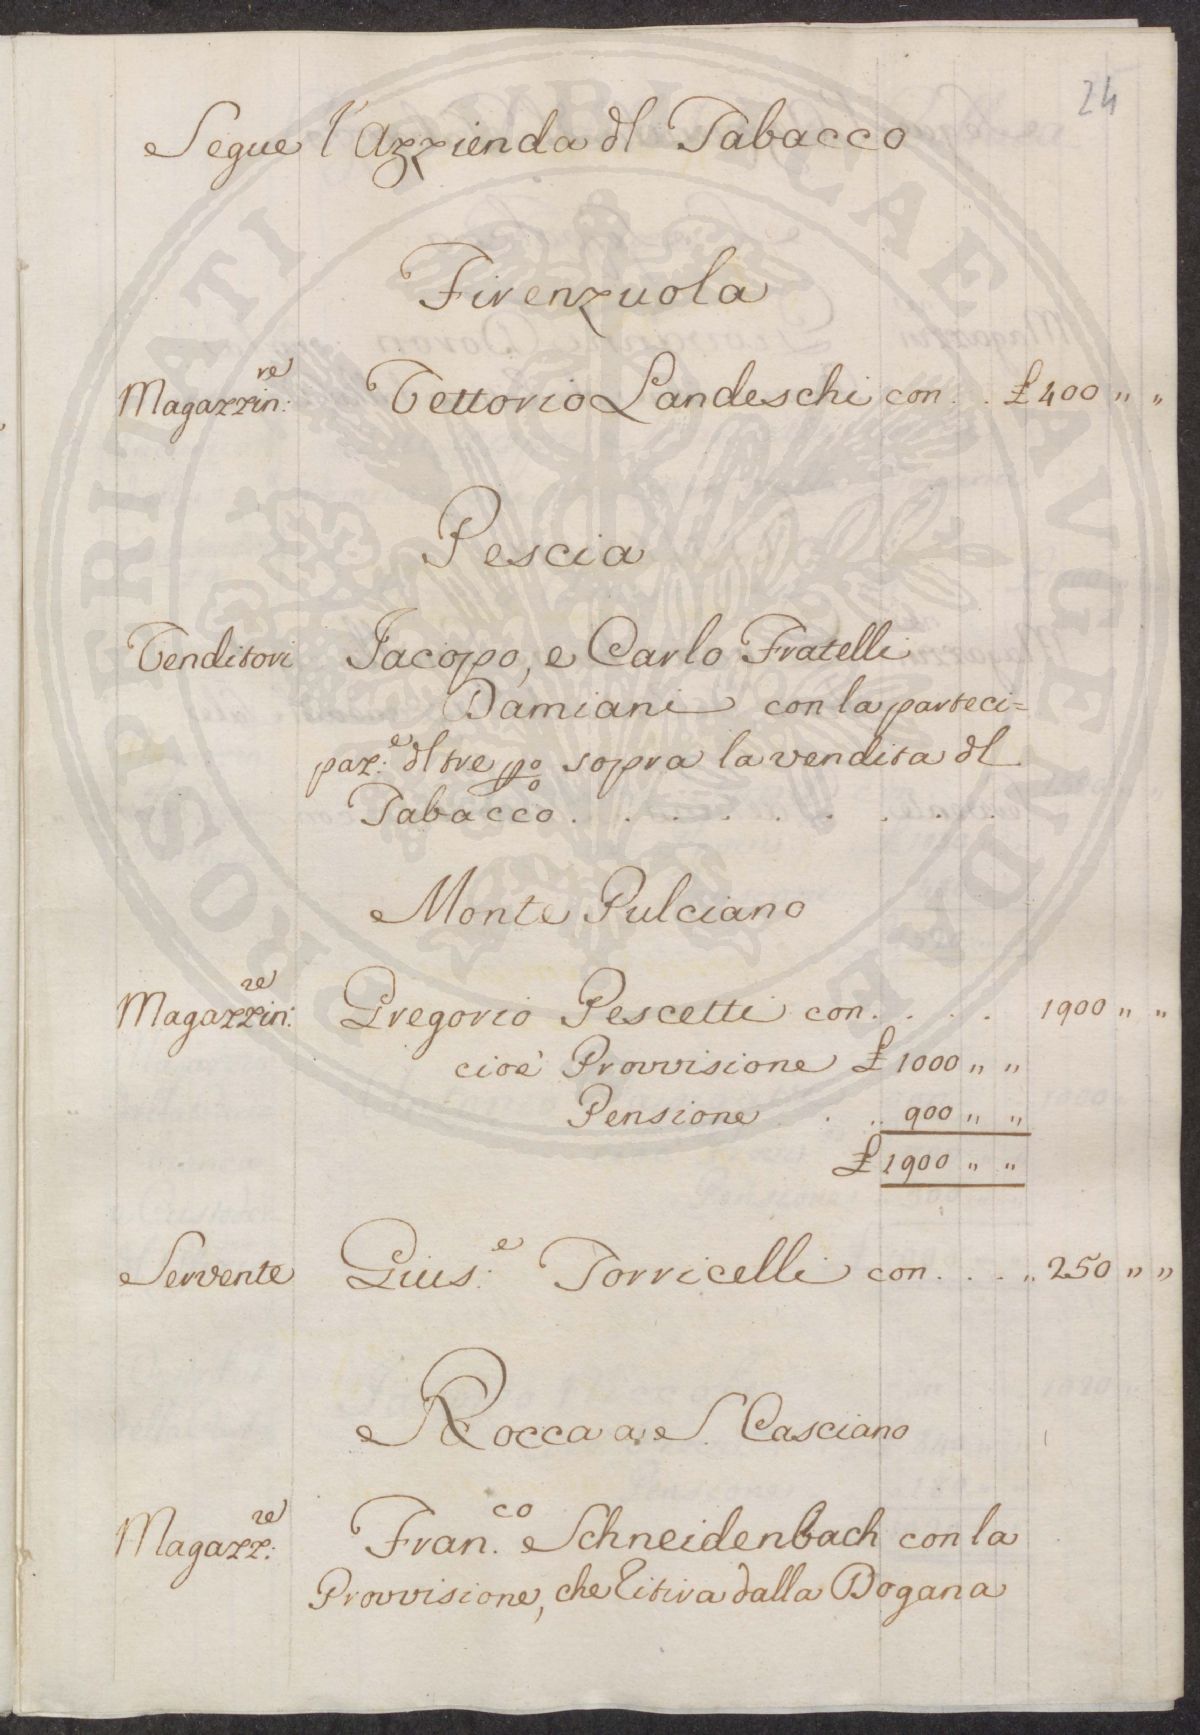 24
Segue l'Azzienda dl Tabacco
Firenzuola
Magazzin:re Vettorio Landeschi con . . £ 400 " "
Pescia
Venditori Jacopo, e Carlo Fratelli
Damiani con la parteci=
paz:e dl tre po/o sopra la vendita dl
Tabacco . . . . . . . . .
Monte Pulciano
Magazzin:re Gregorio Pescetti con . . . . 1900 " "
cioè Provvisione £ 1000 " "
Pensione . .. 900 " "
£ 1900 " "
Servente Gius:e Torricelli con . . . " 250 " "
Rocca a S. Casciano
Magazz:re Fran.co Schneidenbach con la
Provvisione, che ritira dalla Dogana
PROSPERITATI PUBLICAE AUGENDAE